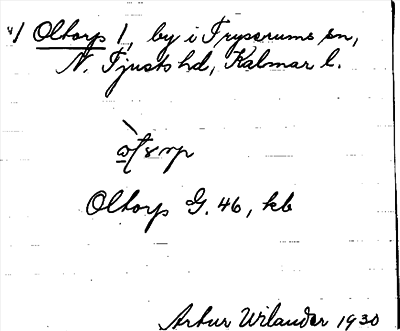 Oltorp 1, by i Tryserums sn,
N. Tjusts hd, Kalmar l.
Oltorp G. 46, kb
Artur Wilander 1930